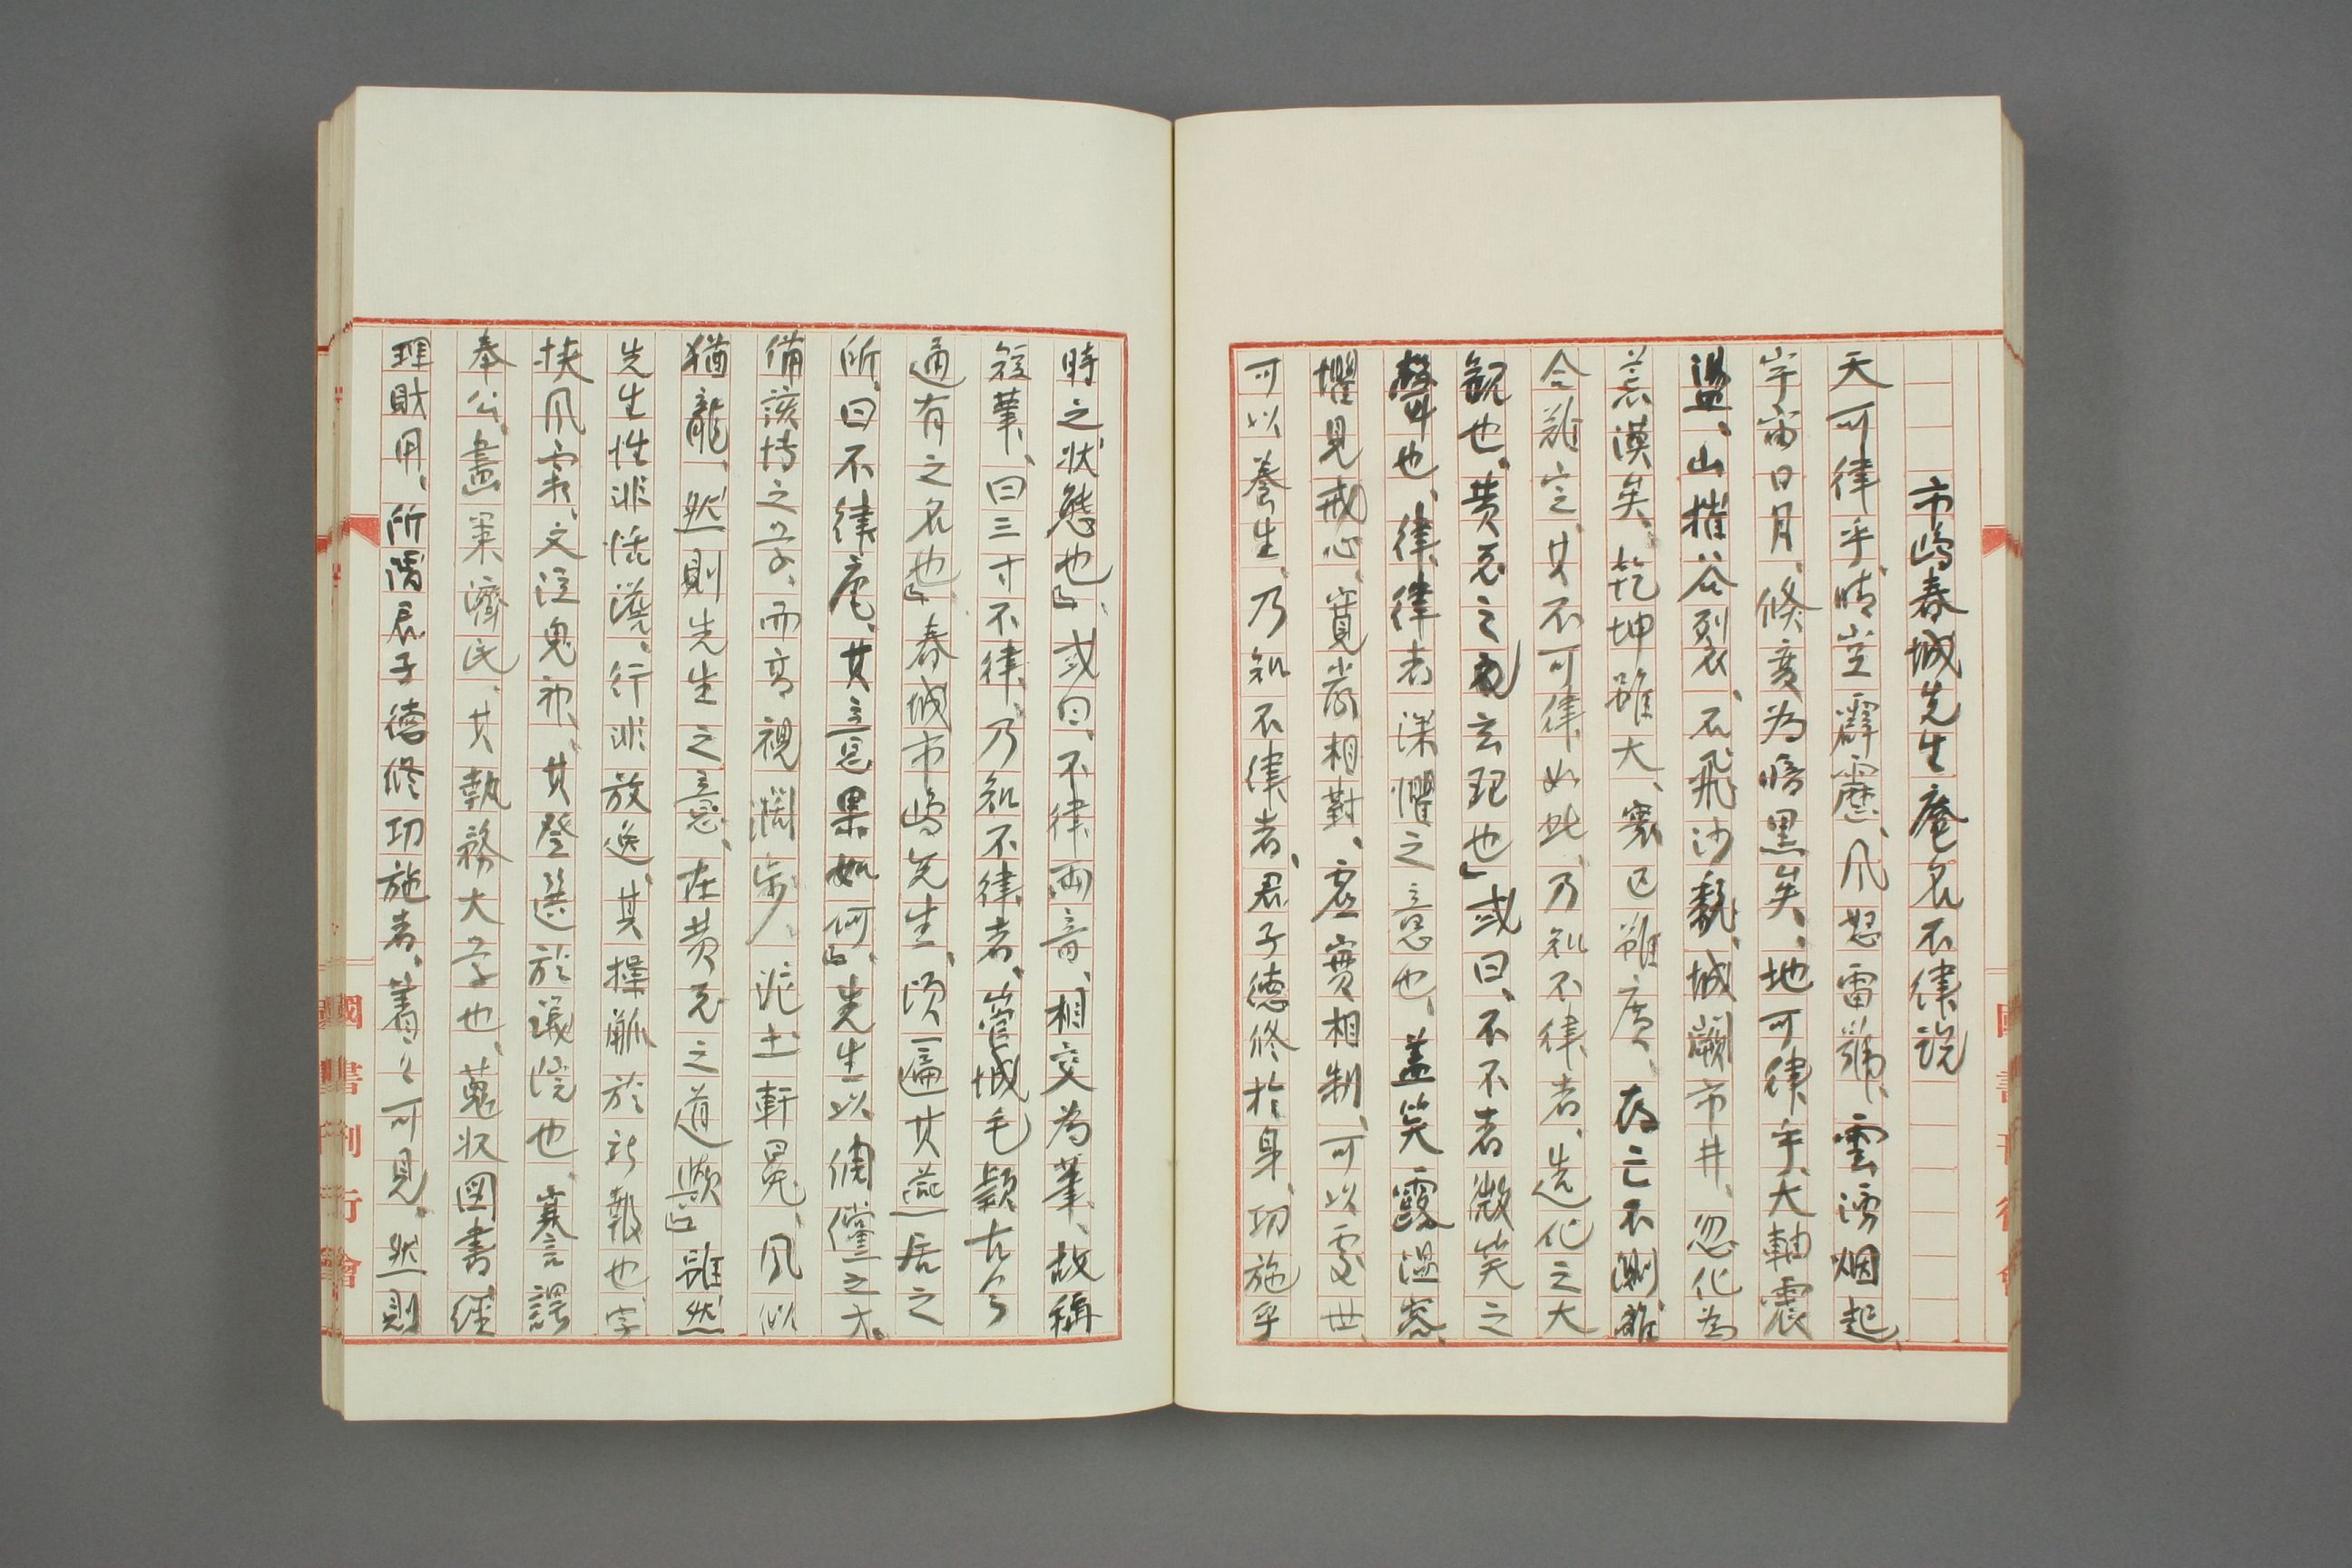 市嶋春城先生庵名不律説
天可律乎、晴空霹靂、風怒雷號、雲湧烟起、
宇宙日月、倏変為暗黒矣、地可律乎、大軸震
盪、山摧谷裂、石飛沙飜、城闕市井、忽化為
荒漠矣、乾坤雖大、寰区雖広、存亡不測、離
合難定、其不可律如此、乃知不律者、造化之大
観也、黄老之玄理也」或曰、不不者微笑之
聲也、律律者深懼之意也、蓋笑露温容、
懼見戒心、寛厳相対、虚実相制、可以処世、
可以養生、乃知不律者、君子徳修於身、功施乎
時之状態也」、或曰、不律両音、相交為筆、故称
筆、曰三寸不律、乃知不律者、管城毛穎古今
通有之名也」、春城市嶋先生、頃扁其燕居之
所、曰不律庵、其意果如何」、先生以倜儻之才。
備該博之学、而高視濶歩、泥土軒冕、風似
猶龍、然則先生之意、在黄老之道歟」雖然
先生性非恬澹、行非放逸、其操觚於新報也、字
挟風霜、文泣鬼神、其登選於議院也、謇言諤
奉公、畫策済民、其執務大学也、蒐収図書、経
理財用、所謂君子徳修功施者、著々可見、然則
國書刊行會